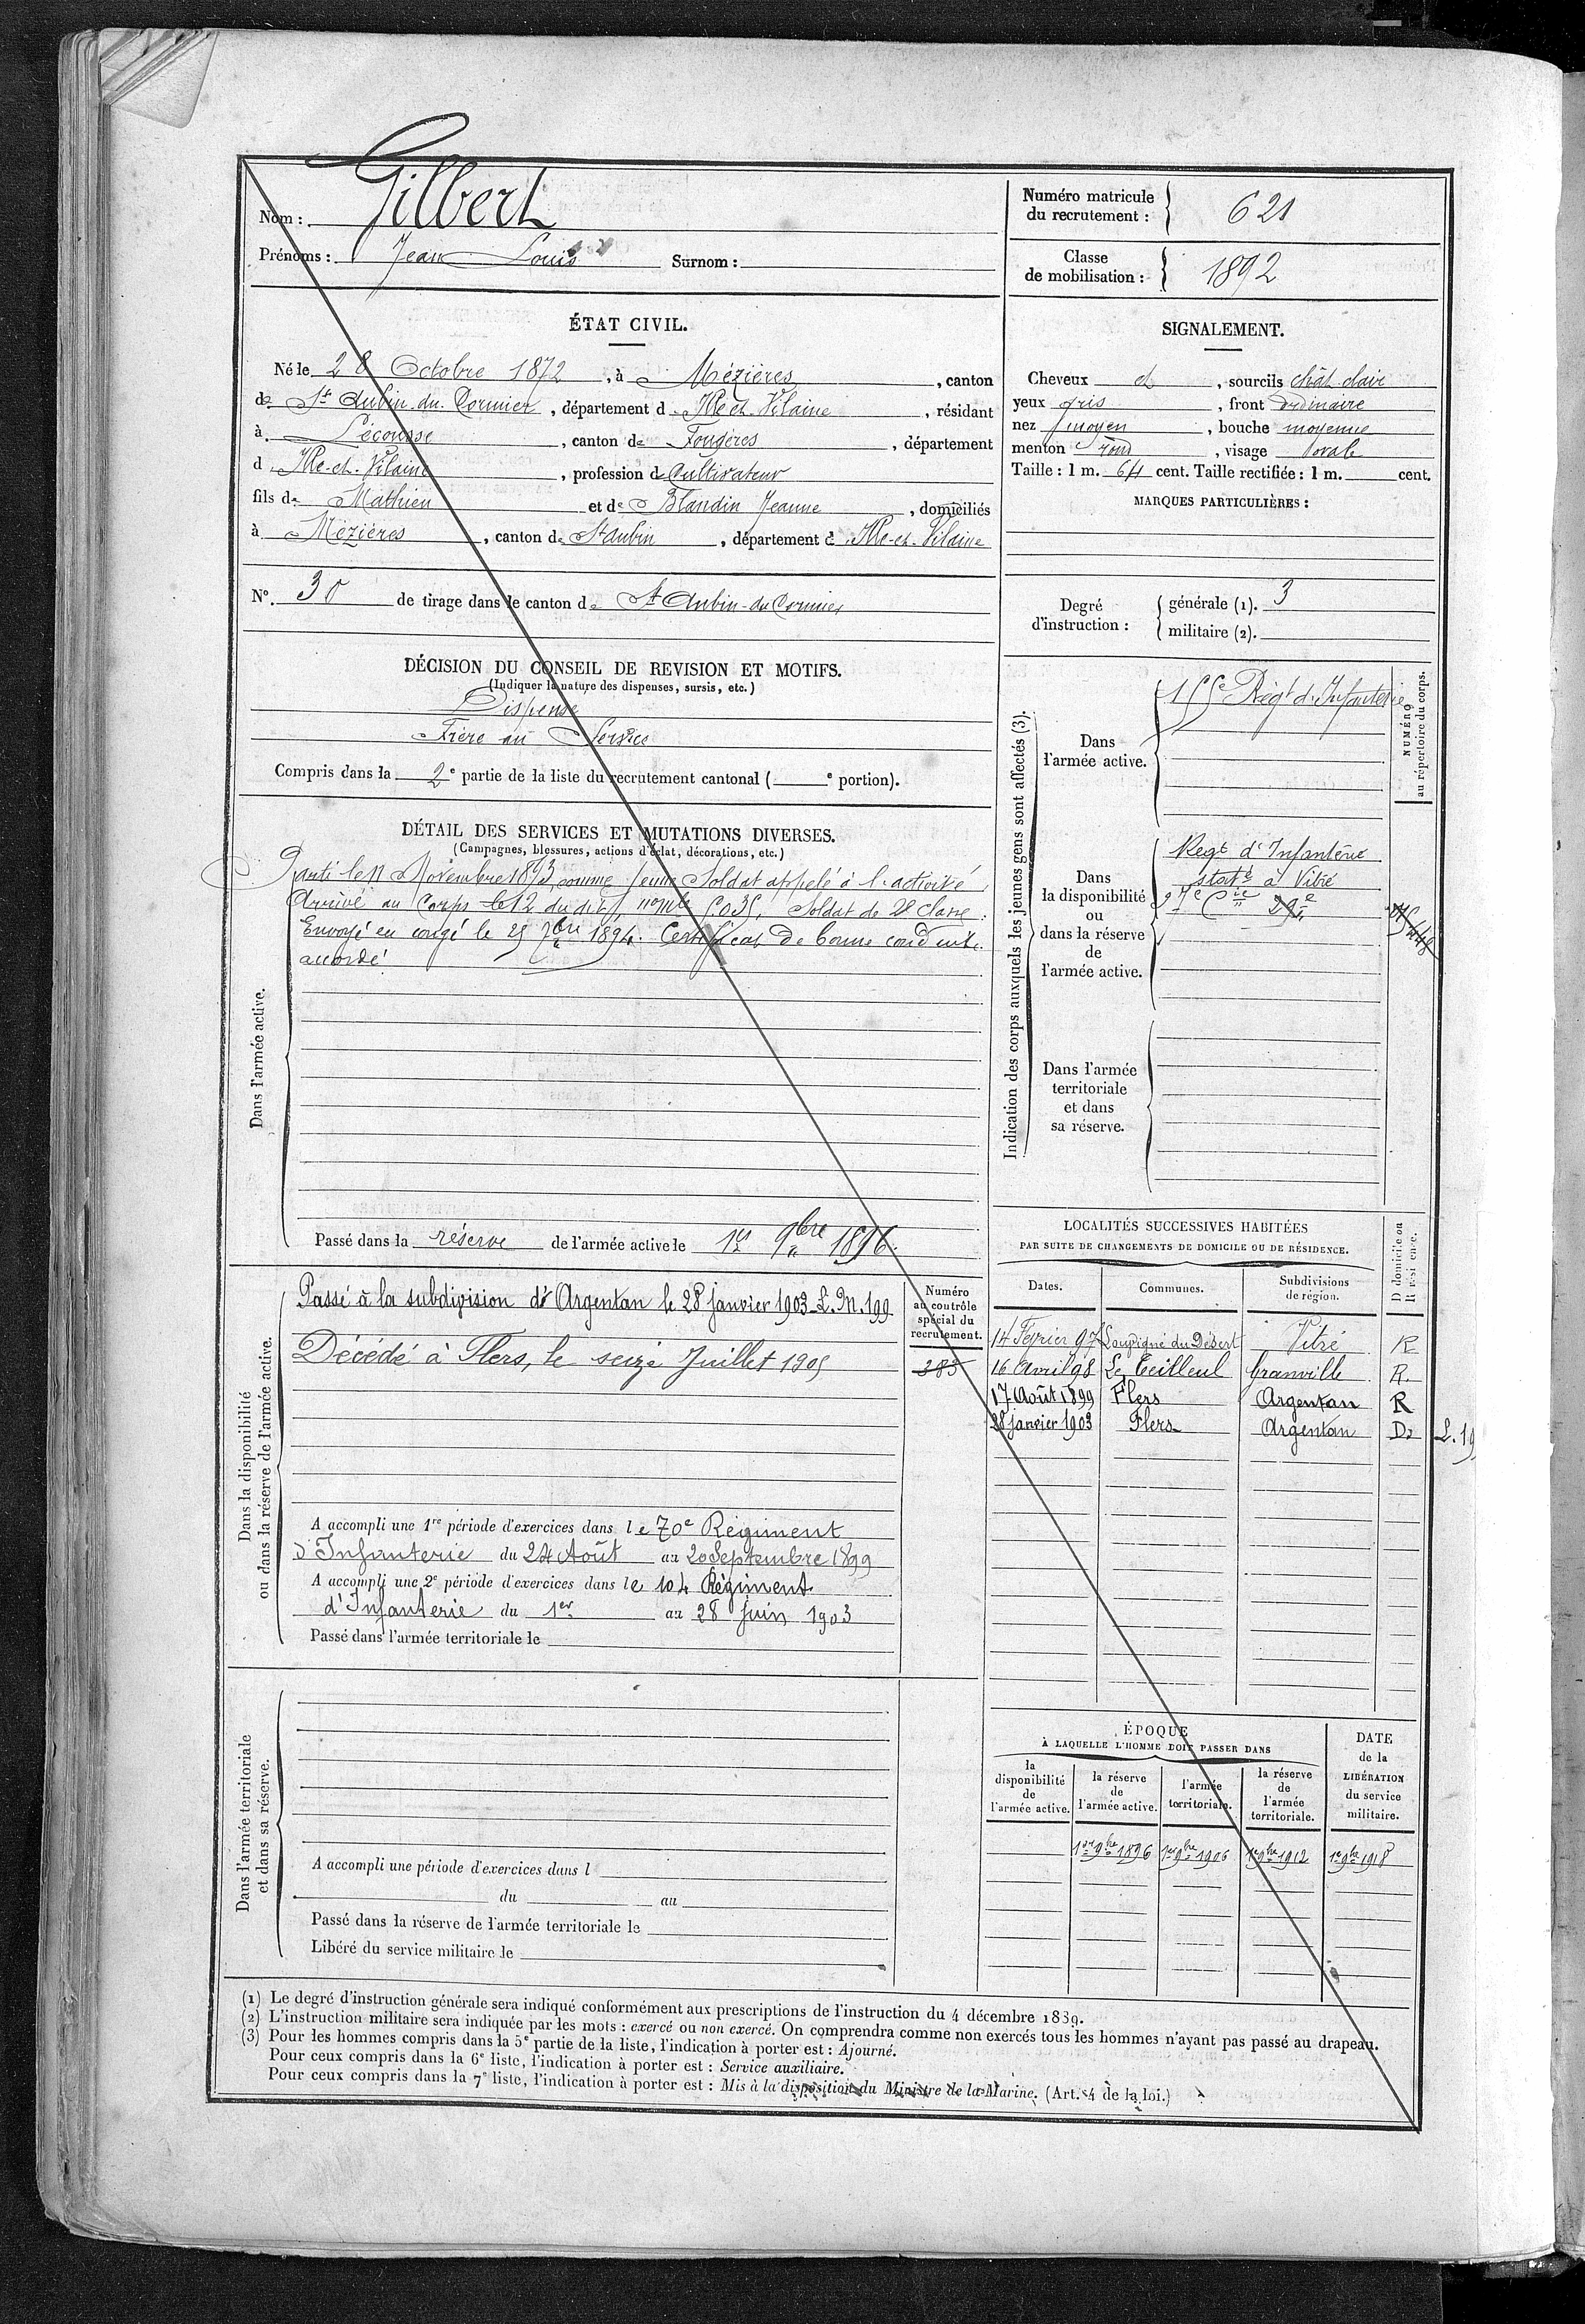 Nom : Gilbert
Prénoms : Jean Louis Surnom :
Numéro matricule du recrutement : 621
Classe de mobilisation : 1892
ÉTAT CIVIL.
Né le 28 Octobre 1872, à Mézières, canton
de St Aubin du Cormier, département d Ille et Vilaine, résidant
à Lécousse, canton de Fougères, département
d Ille-et-Vilaine, profession d Cultivateur
fils de Mathieu et de Blandin Jeanne, domiciliés
à Mézières, canton de St Aubin, département d Ille-et-Vilaine
N° 30 de tirage dans le canton de St Aubin-du-Cormier
SIGNALEMENT.
Cheveux et, sourcils chât. clair
yeux gris, front ordinaire
nez moyen, bouche moyenne
menton rond, visage ovale
Taille : 1 m. 64 cent. Taille rectifiée : 1 m. cent.
MARQUES PARTICULIÈRES :
Degré d'instruction : générale (1). 3
militaire (2).
DÉCISION DU CONSEIL DE REVISION ET MOTIFS.
(Indiquer la nature des dispenses, sursis, etc.)
Dispensé
Frère au Service
Compris dans la 2e partie de la liste du recrutement cantonal ( e portion).
DÉTAIL DES SERVICES ET MUTATIONS DIVERSES.
(Campagnes, blessures, actions d'éclat, décorations, etc.)
Dans l'armée active.
Parti le 11 Novembre 1893, comme jeune Soldat appelé à l'activité,
Arrivé au Corps le 12 du dit, no mle 5035, Soldat de 2e classe.
Envoyé en congé le 25 7bre 1894. Certificat de bonne conduite
accordé
Passé dans la réserve de l'armée active le 1er 9bre 1896.
Indication des corps auxquels les jeunes gens sont affectés (3).
NUMÉRO au répertoire du corps.
Dans l'armée active.
155e Régt d'Infanterie
Dans la disponibilité ou dans la réserve de l'armée active.
Regt d'Infanterie
statné à Vitré
27e Cie
Dans l'armée territoriale et dans sa réserve.
Dans la disponibilité ou dans la réserve de l'armée active.
Passé à la subdivision d'Argentan le 28 janvier 1903 L. M. 199
Décédé à Flers, le seize Juillet 1905
Numéro au contrôle spécial du recrutement.
383
A accompli une 1re période d'exercices dans le 70e Régiment
d'Infanterie du 24 Août au 20 Septembre 1899
A accompli une 2e période d'exercices dans le 104 Régiment
d'Infanterie du 1er au 28 Juin 1903
Passé dans l'armée territoriale le
LOCALITÉS SUCCESSIVES HABITÉES
PAR SUITE DE CHANGEMENTS DE DOMICILE OU DE RÉSIDENCE.
Dates. Communes. Subdivisions de région. D domicile ou R résidence.
14 Février 97 Louvigné du Désert Vitré R
16 Avril 98 Le Teilleul Granville R.
17 Août 1899 Flers Argentan R
28 janvier 1903 Flers Argentan D. L. 19
Dans l'armée territoriale et dans sa réserve.
A accompli une période d'exercices dans l
du au
Passé dans la réserve de l'armée territoriale le
Libéré du service militaire le
ÉPOQUE
À LAQUELLE L'HOMME DOIT PASSER DANS
la disponibilité de l'armée active. la réserve de l'armée active. l'armée territoriale. la réserve de l'armée territoriale.
DATE de la LIBÉRATION du service militaire.
1er 9bre 1896 1er 9bre 1906 1er 9bre 1912 1er 9bre 1918
(1) Le degré d'instruction générale sera indiqué conformément aux prescriptions de l'instruction du 4 décembre 1889.
(2) L'instruction militaire sera indiquée par les mots : exercé ou non exercé. On comprendra comme non exercés tous les hommes n'ayant pas passé au drapeau.
(3) Pour les hommes compris dans la 5e partie de la liste, l'indication à porter est : Ajourné.
Pour ceux compris dans la 6e liste, l'indication à porter est : Service auxiliaire.
Pour ceux compris dans la 7e liste, l'indication à porter est : Mis à la disposition du Ministre de la Marine. (Art. 4 de la loi.)